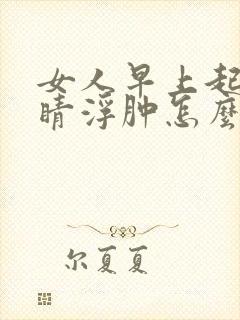 女人早上起
睛浮肿怎麼
尔夏夏